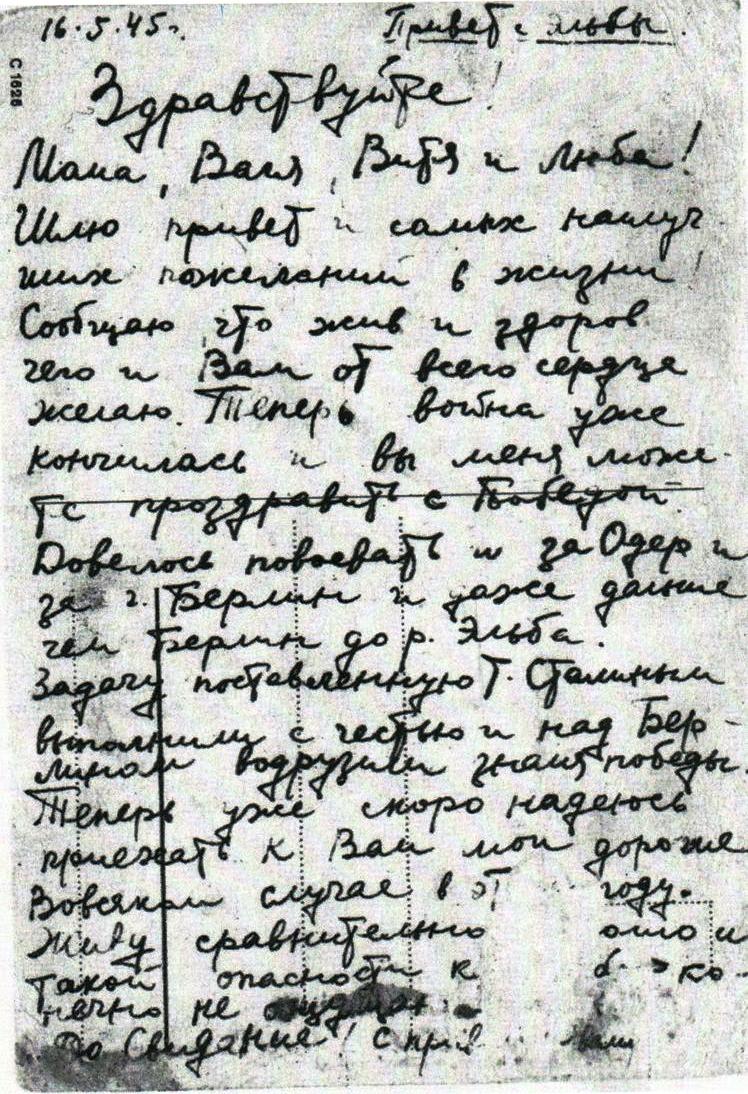 16.5.45г. Привет с Эльбы.
С 1626
Здравствуйте!
Мама, Вася, Витя и Люба!
Шлю привет и самых наилуч
ших пожеланий в жизни!
Сообщаю, что жив и здоров
чего и Вам от всего сердца
желаю. Теперь война уже
кончилась и вы меня може-
те проздравить с Победой
Довелось повоевать и за Одер и
за г. Берлин и даже дальше
чем Берлин до р. Эльба.
Задачу поставленную Т. Сталиным
выполнили с честью и над Бер-
лином водрузили знамя победы.
Теперь уже скоро надеюсь
приехать к Вам мои дорогие
Вовсяком случае в эт году.
Живу сравнительно ошо и
такой опасности к ко-
нечно не
До Свидание! С прив